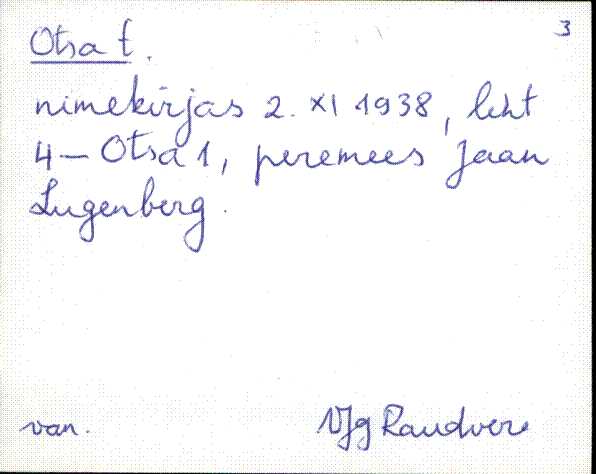 3
Otsa t.
nimekirjas 2. XI 1938, leht
4 – Otsa 1, peremees Jaan
Lugenberg.
van. VJg Raudvere